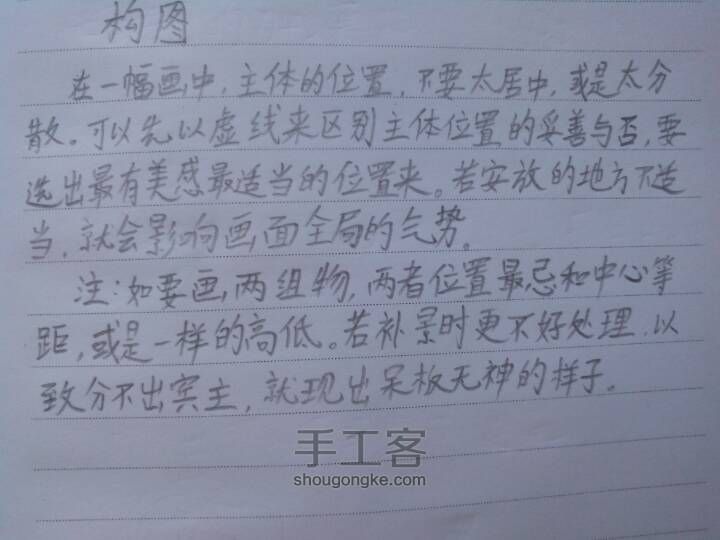 构图
在一幅画中,主体的位置,不要太居中,或是太分
散。可以先以虚线来区别主体位置的妥善与否,要
选出最有美感最适当的位置来。若安放的地方不适
当,就会影响画面全局的气势。
注:如要画两组物,两者位置最忌和中心等
距,或是一样的高低。若补景时更不好处理,以
致分不出宾主,就现出呆板无神的样子。
手工客
shougongke.com